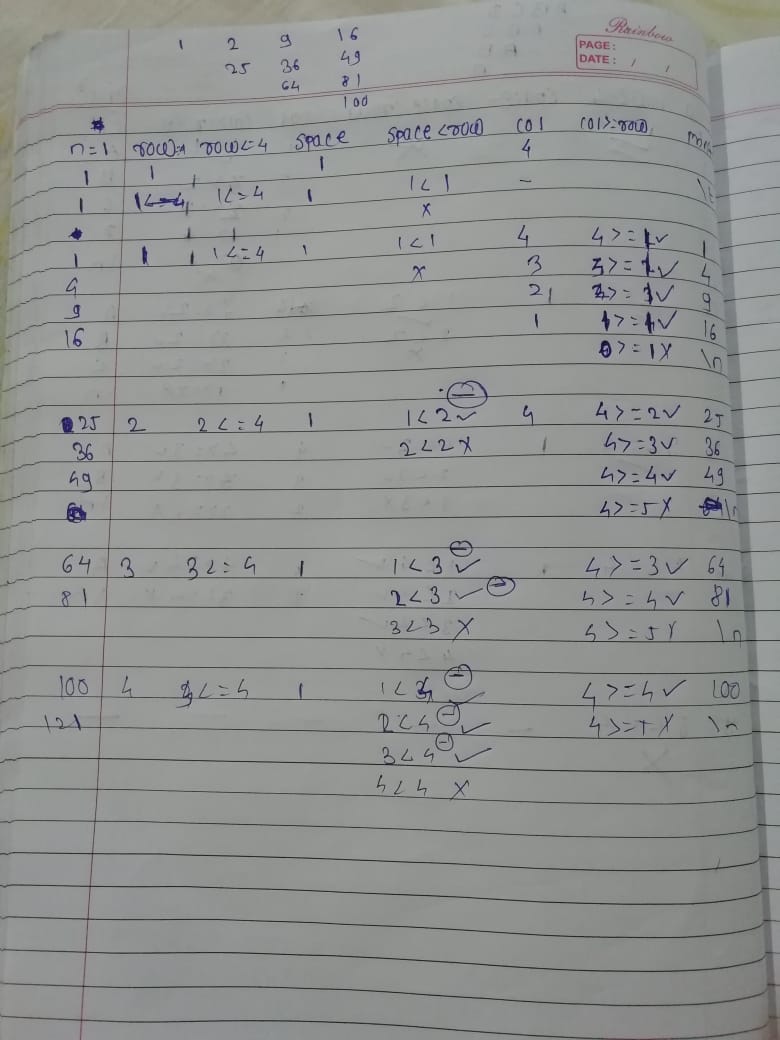 Rainbow
PAGE:
DATE: / /
1 2 9 16
25 36 49
64 81
100
n=1 row=1 row<=4 space space<row col col>=row
1 1 1 4
1 1<=4 1 1<1 –
x
1 1 1<=4 1 1<1 4 4>=1✓ 1
4 x 3 3>=1✓ 4
9 2 2>=1✓ 9
16 1 1>=1✓ 16
0>=1X \n
25 2 2<=4 1 1<2✓ 4 4>=2✓ 25
36 2<2X 4>=3✓ 36
49 4>=4✓ 49
4>=5X \n
64 3 3<=4 1 1<3✓ 4>=3✓ 64
81 2<3✓ 4>=4✓ 81
3<3 X 4>=5X \n
100 4 4<=4 1 1<4✓ 4>=4✓ 100
121 2<4✓ 4>= X \n
3<4✓
4<4 X